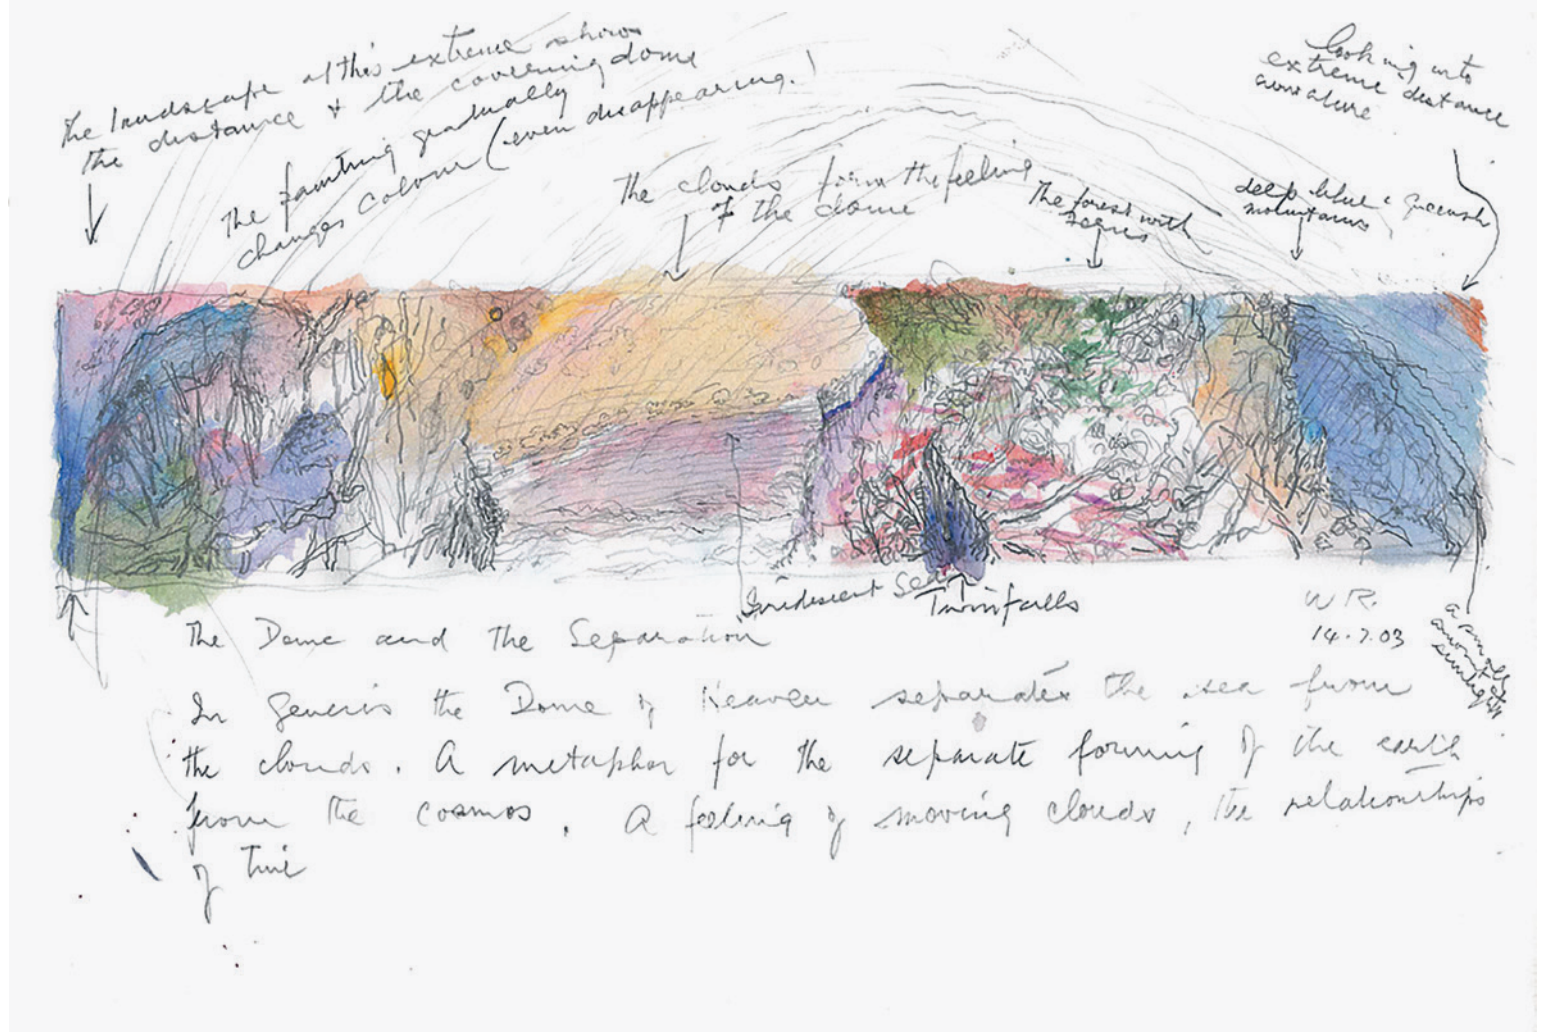 The landscape at this extreme shows
the distance & the covering dome
The painting gradually
changes colour (even disappearing.)
The clouds form the feeling
of the dome
The forest with
deep blue & greenish
mountains
looking into
extreme distance
Iridescent Sea
Twin falls
a small
amount of
sunlight
W R.
14.7.03
The Dome and the Separation
In Genesis the Dome of Heaven separates the sea from
the clouds. A metaphor for the separate forming of the earth
from the cosmos. A feeling of moving clouds, the relationships
of time